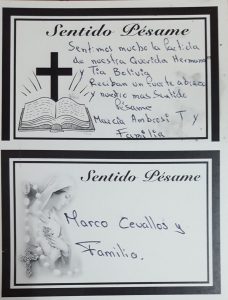 Sentido Pésame
Sentimos mucho la partida
de nuestra Querida Hermana
y Tía Beltvia
Reciban un fuerte abrazo
y nuestro mas Sentido
Pésame
Marcia Ambrosi T y
Familia
Sentido Pésame
Marco Cevallos y
Familia.